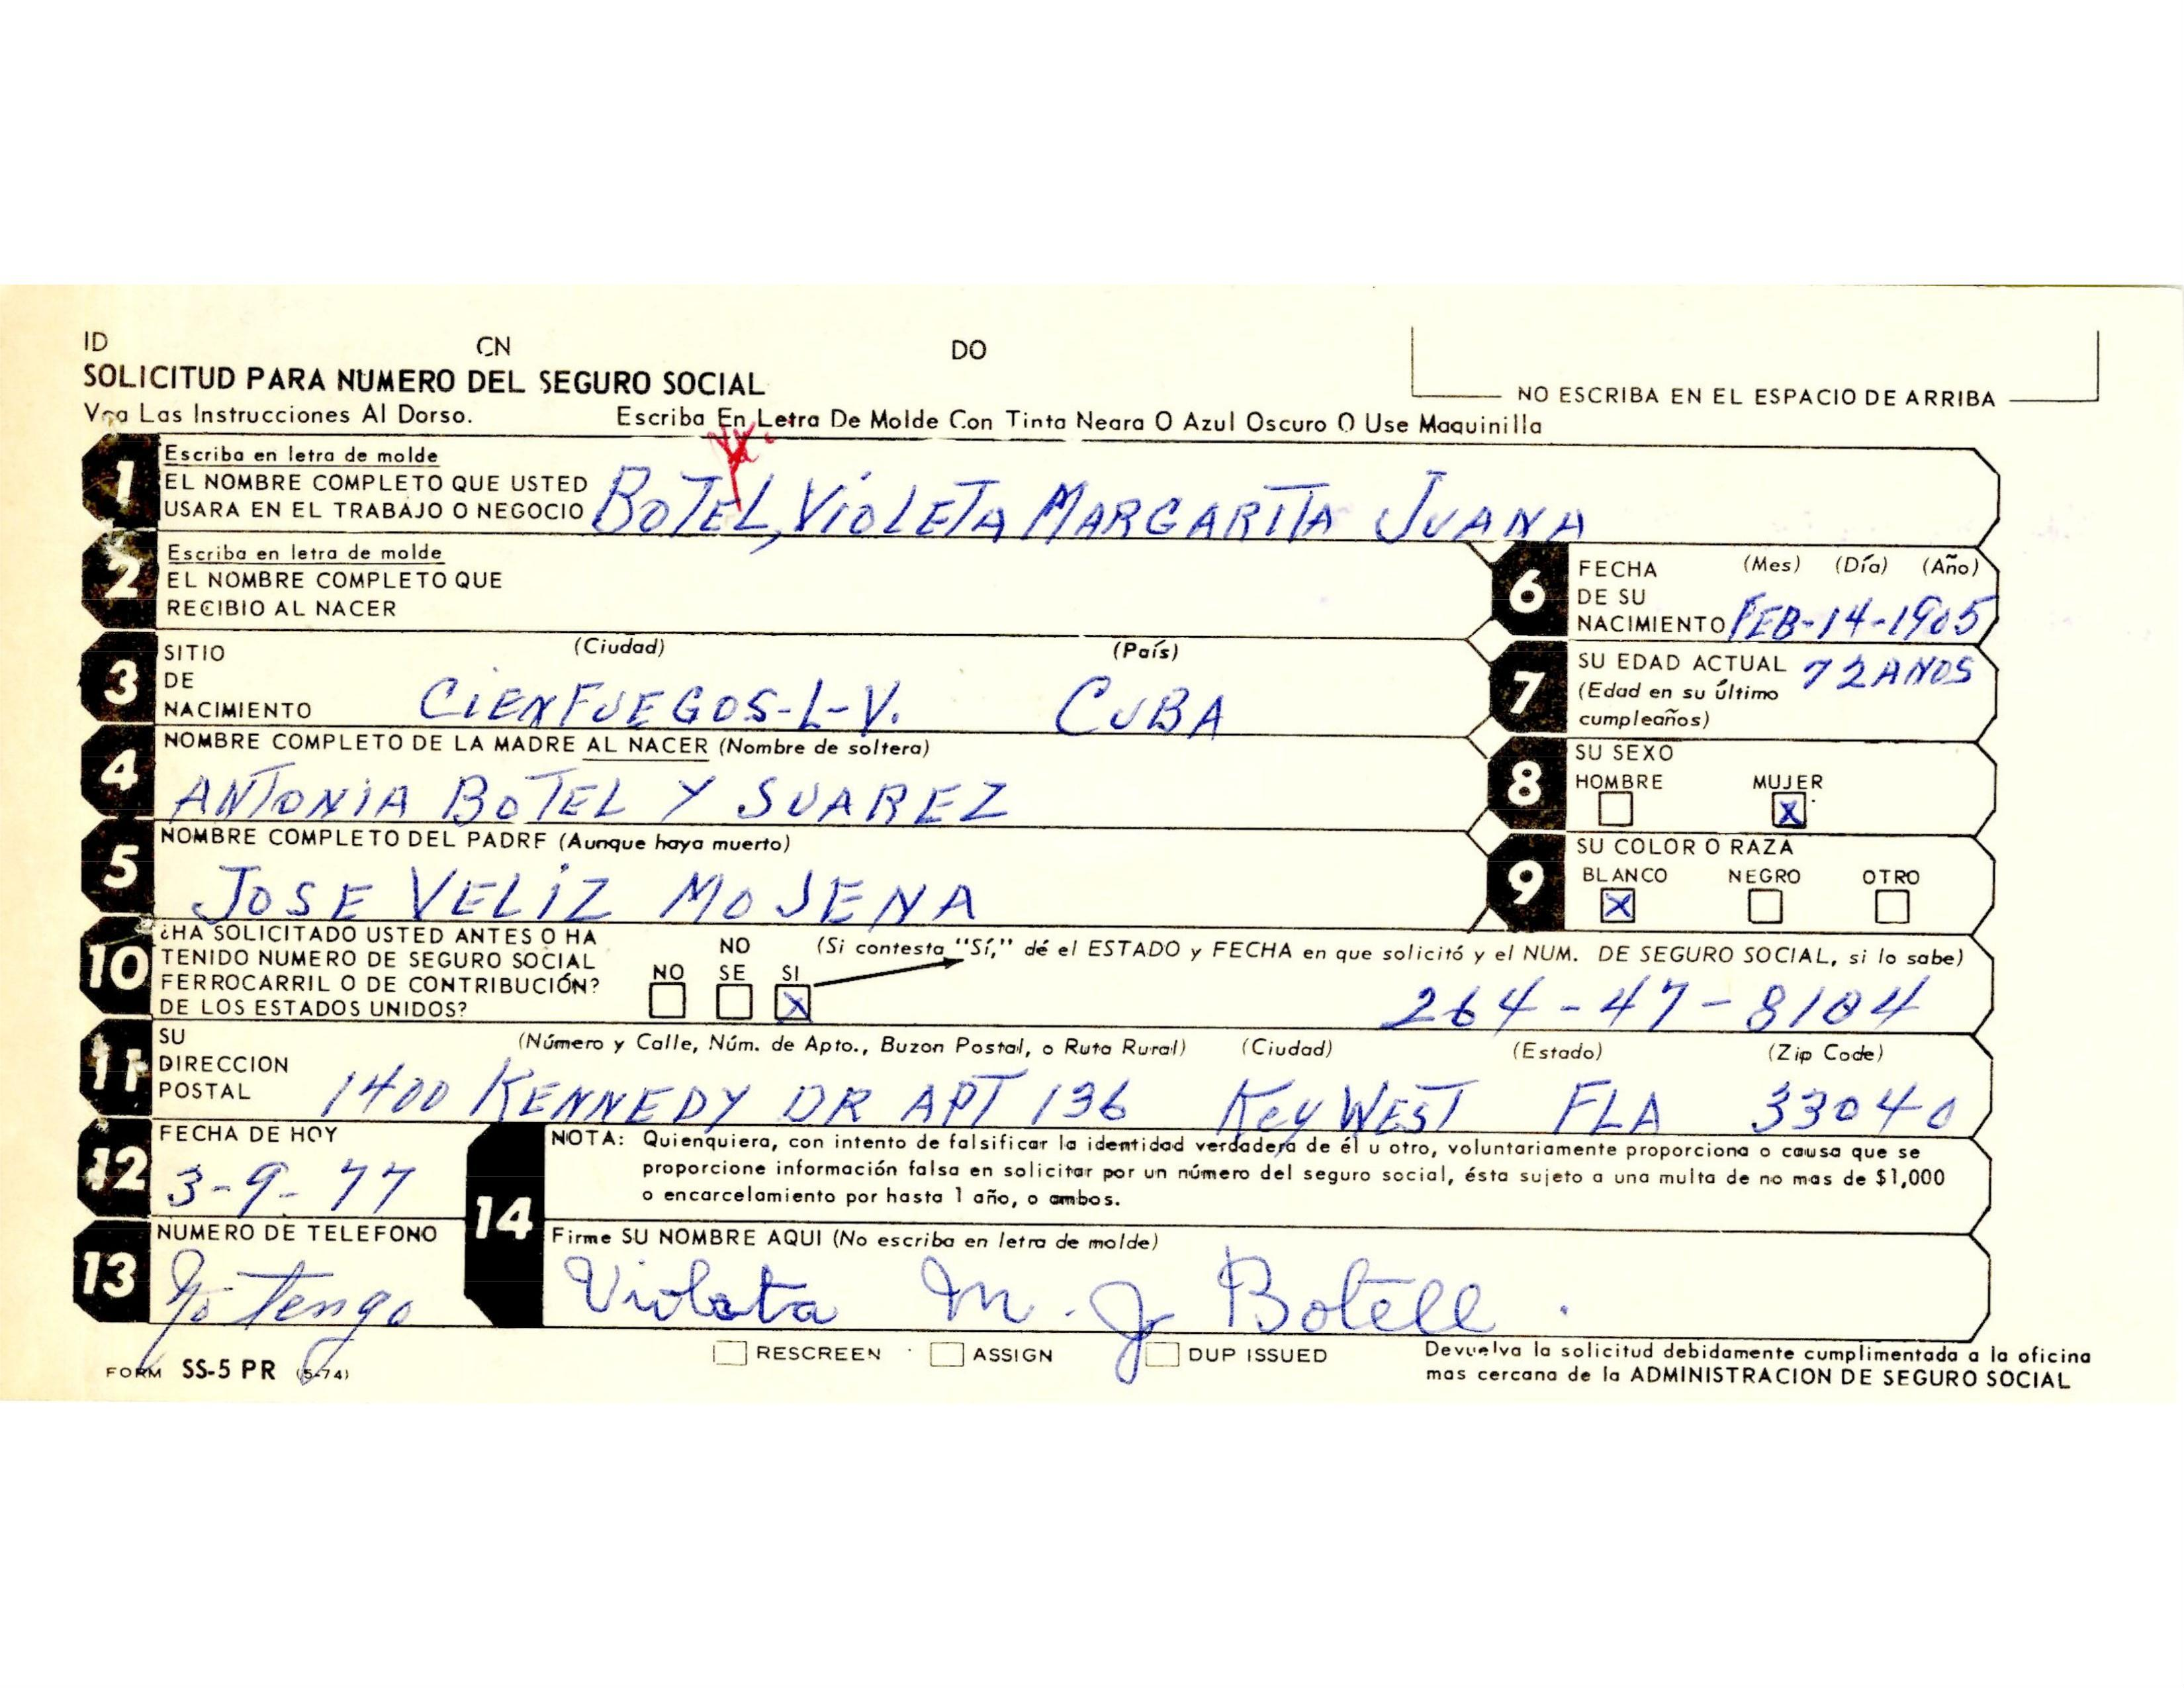 ID CN DO
SOLICITUD PARA NUMERO DEL SEGURO SOCIAL
NO ESCRIBA EN EL ESPACIO DE ARRIBA
Vea Las Instrucciones Al Dorso. Escriba En Letra De Molde Con Tinta Negra O Azul Oscuro O Use Maquinilla
1 Escriba en letra de molde
EL NOMBRE COMPLETO QUE USTED
USARA EN EL TRABAJO O NEGOCIO BOTEL, VIOLETA MARGARITA JUANA
2 Escriba en letra de molde
EL NOMBRE COMPLETO QUE
RECIBIO AL NACER
6 FECHA (Mes) (Día) (Año)
DE SU
NACIMIENTO FEB-14-1905
3 SITIO (Ciudad) (País)
DE
NACIMIENTO CIENFUEGOS-L-V. CUBA
7 SU EDAD ACTUAL 72 ANOS
(Edad en su último
cumpleaños)
4 NOMBRE COMPLETO DE LA MADRE AL NACER (Nombre de soltera)
ANTONIA BOTEL Y SUAREZ
8 SU SEXO
HOMBRE MUJER
X
5 NOMBRE COMPLETO DEL PADRE (Aunque haya muerto)
JOSE VELIZ MOJENA
9 SU COLOR O RAZA
BLANCO NEGRO OTRO
X
10 ¿HA SOLICITADO USTED ANTES O HA
TENIDO NUMERO DE SEGURO SOCIAL
FERROCARRIL O DE CONTRIBUCIÓN?
DE LOS ESTADOS UNIDOS?
NO NO SE SI
X
(Si contesta "Sí," dé el ESTADO y FECHA en que solicitó y el NUM. DE SEGURO SOCIAL, si lo sabe)
264-47-8104
11 SU (Número y Calle, Núm. de Apto., Buzon Postal, o Ruta Rural) (Ciudad) (Estado) (Zip Code)
DIRECCION
POSTAL 1400 KENNEDY DR APT 136 Key WEST FLA 33040
12 FECHA DE HOY
3-9-77
14 NOTA: Quienquiera, con intento de falsificar la identidad verdadera de él u otro, voluntariamente proporciona o causa que se
proporcione información falsa en solicitar por un número del seguro social, ésta sujeto a una multa de no mas de $1,000
o encarcelamiento por hasta 1 año, o ambos.
13 NUMERO DE TELEFONO
No tengo
Firme SU NOMBRE AQUI (No escriba en letra de molde)
Violeta M. J Botell.
RESCREEN ASSIGN DUP ISSUED
FORM SS-5 PR (5-74)
Devuelva la solicitud debidamente cumplimentada a la oficina
mas cercana de la ADMINISTRACION DE SEGURO SOCIAL